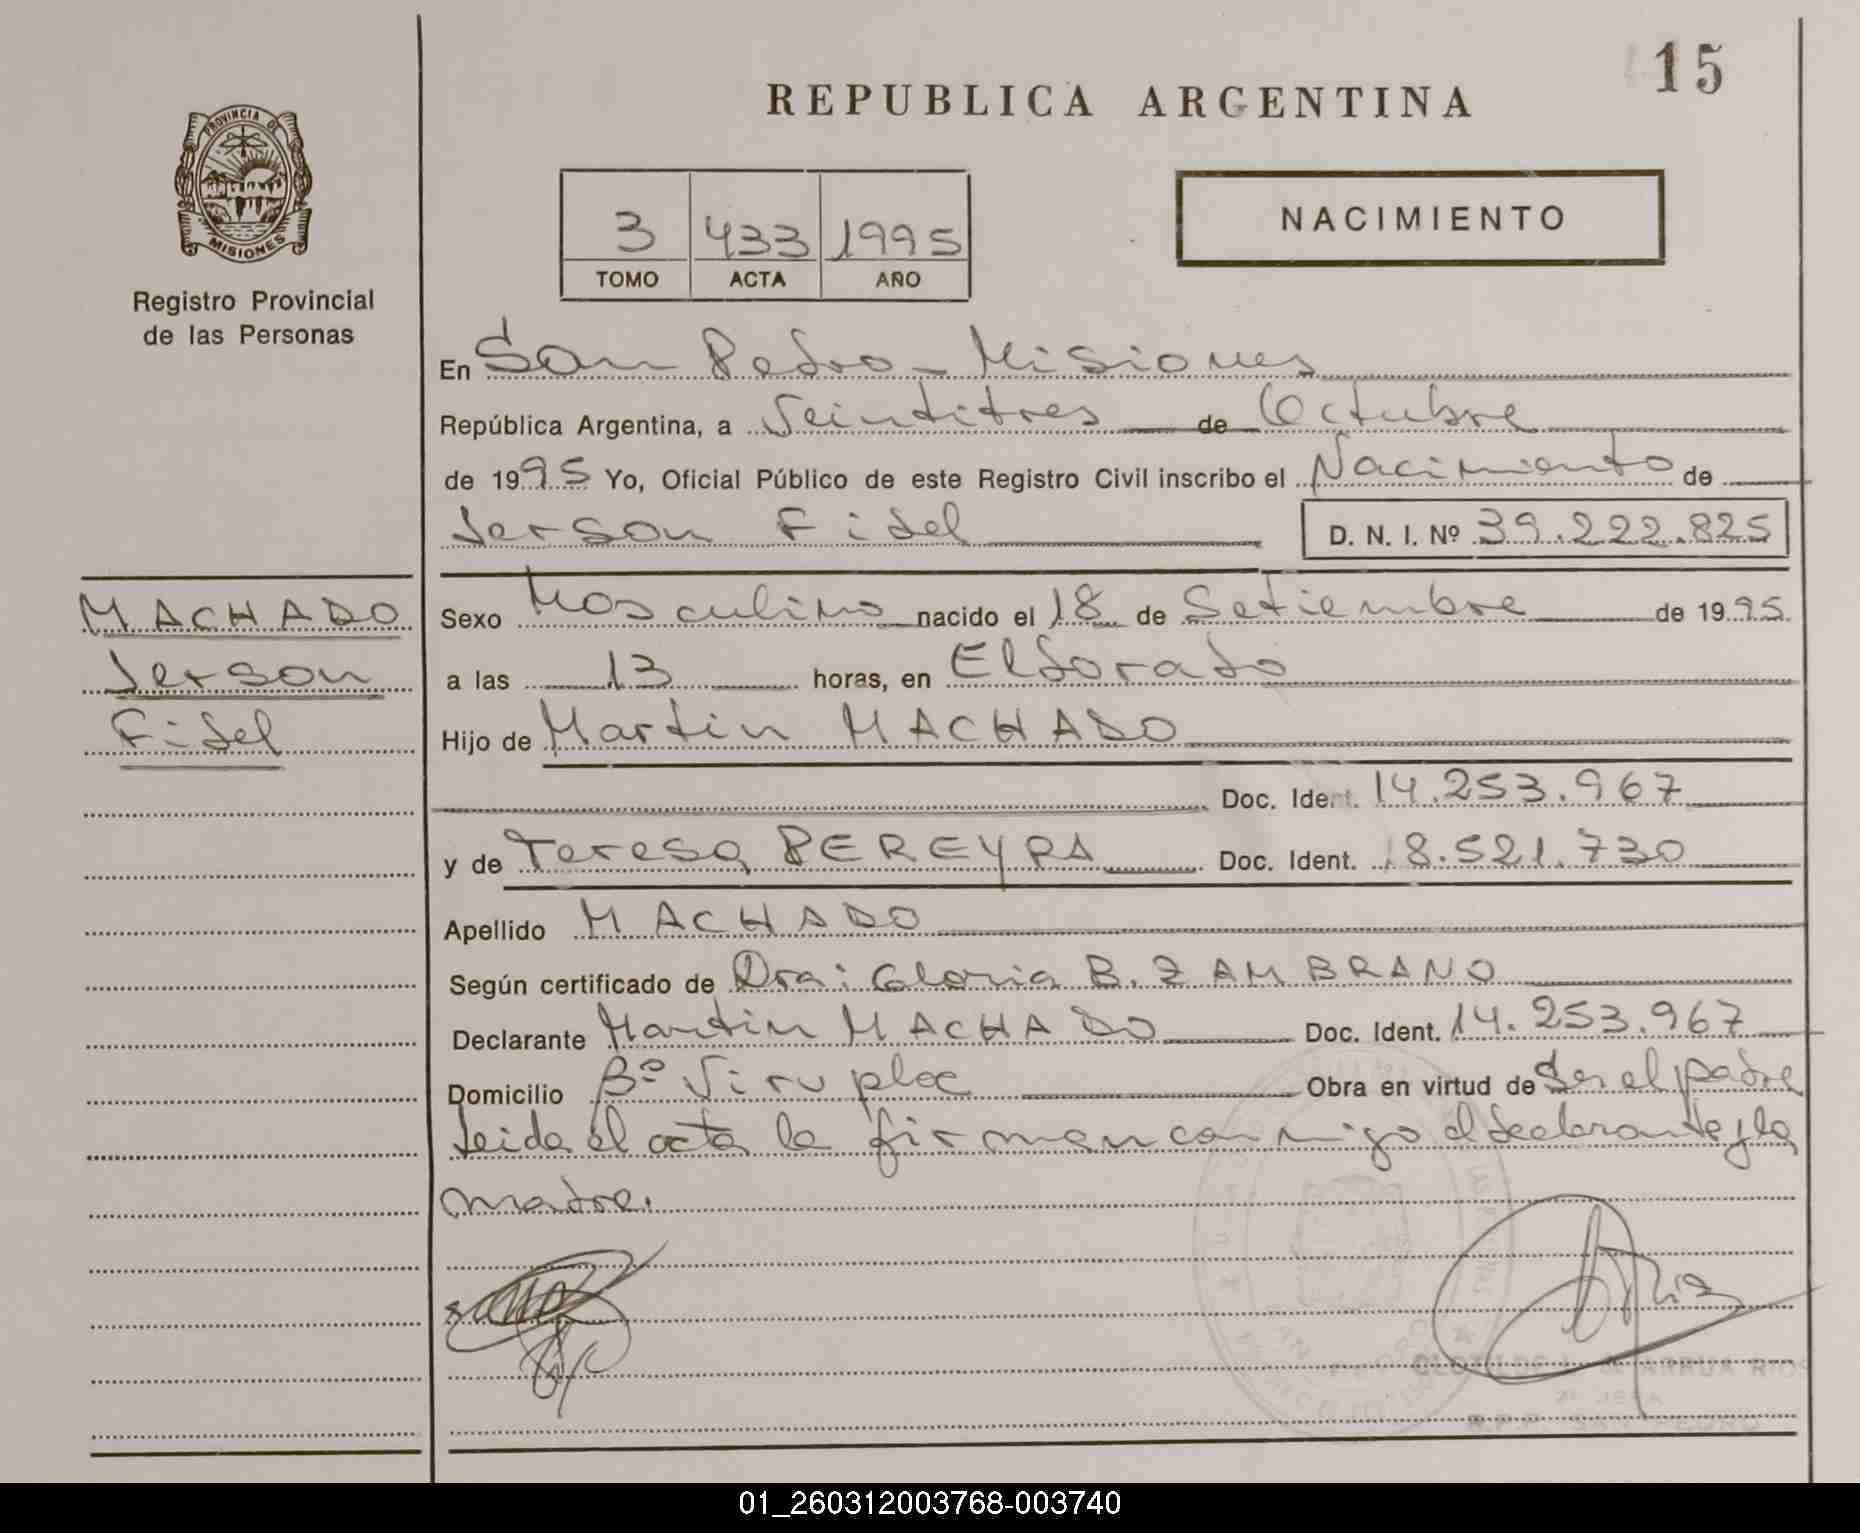 15
REPUBLICA ARGENTINA
PROVINCIA DE
MISIONES
Registro Provincial
de las Personas
3 433 1995
TOMO ACTA AÑO
NACIMIENTO
En San Pedro - Misiones
República Argentina, a Veintitres de Octubre
de 1995 Yo, Oficial Público de este Registro Civil inscribo el Nacimiento de
Jerson Fidel D. N. I. Nº 39.222.825
MACHADO
Jerson
Fidel
Sexo Masculino nacido el 18 de Setiembre de 1995.
a las 13 horas, en Eldorado
Hijo de Martin MACHADO
Doc. Ident. 14.253.967
y de Teresa PEREYRA Doc. Ident. 18.521.730
Apellido MACHADO
Según certificado de Dra: Gloria B. ZAMBRANO
Declarante Martin MACHADO Doc. Ident. 14.253.967
Domicilio Bº Viru Obra en virtud de Ser el padre
Leida el acta la firman conmigo el declarante y la
madre.
ARRUA
R.P.P. SAN PEDRO
01_260312003768-003740